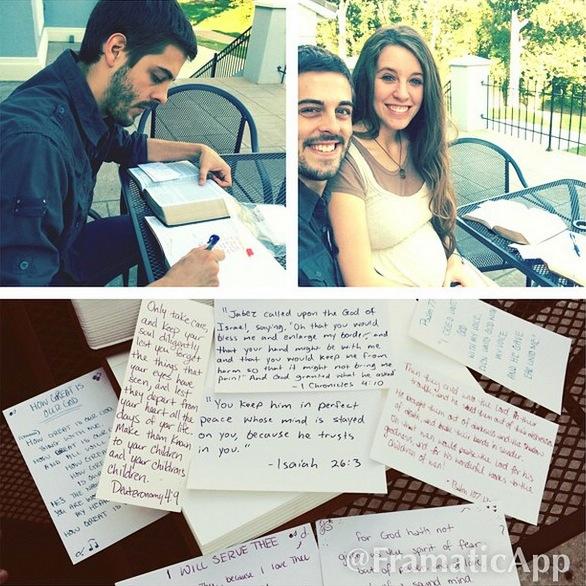 Only take care,
and keep your
soul diligently
lest you forget
the things that
your eyes have
seen, and lest
they depart from
your heart all the
days of your life.
Make them known
to your children
and your childrens
children.
Deuteronomy 4:9
"Jabez called upon the God of
Israel, saying, 'Oh that you would
bless me and enlarge my border, and
that your hand might be with me
and that you would keep me from
harm so that it might not bring me
pain!' And God granted what he asked"
- 1 Chronicles 4:10
"You keep him in perfect
peace whose mind is stayed
on you, because he trusts
in you."
- Isaiah 26:3
HOW GREAT IS
OUR GOD
HOW GREAT IS OUR GOD
Then they cried unto the Lord in their
trouble, and he saved them out of their distresses
He brought them out of darkness and the shadow
of death, and brake their bands in sunder.
Oh that men would praise the Lord for his
goodness, and for his wonderful works to the
children of men!
- Psalm 107
I WILL SERVE THEE
because I love Thee
For God hath not
spirit of fear
sound mind
@FramaticApp